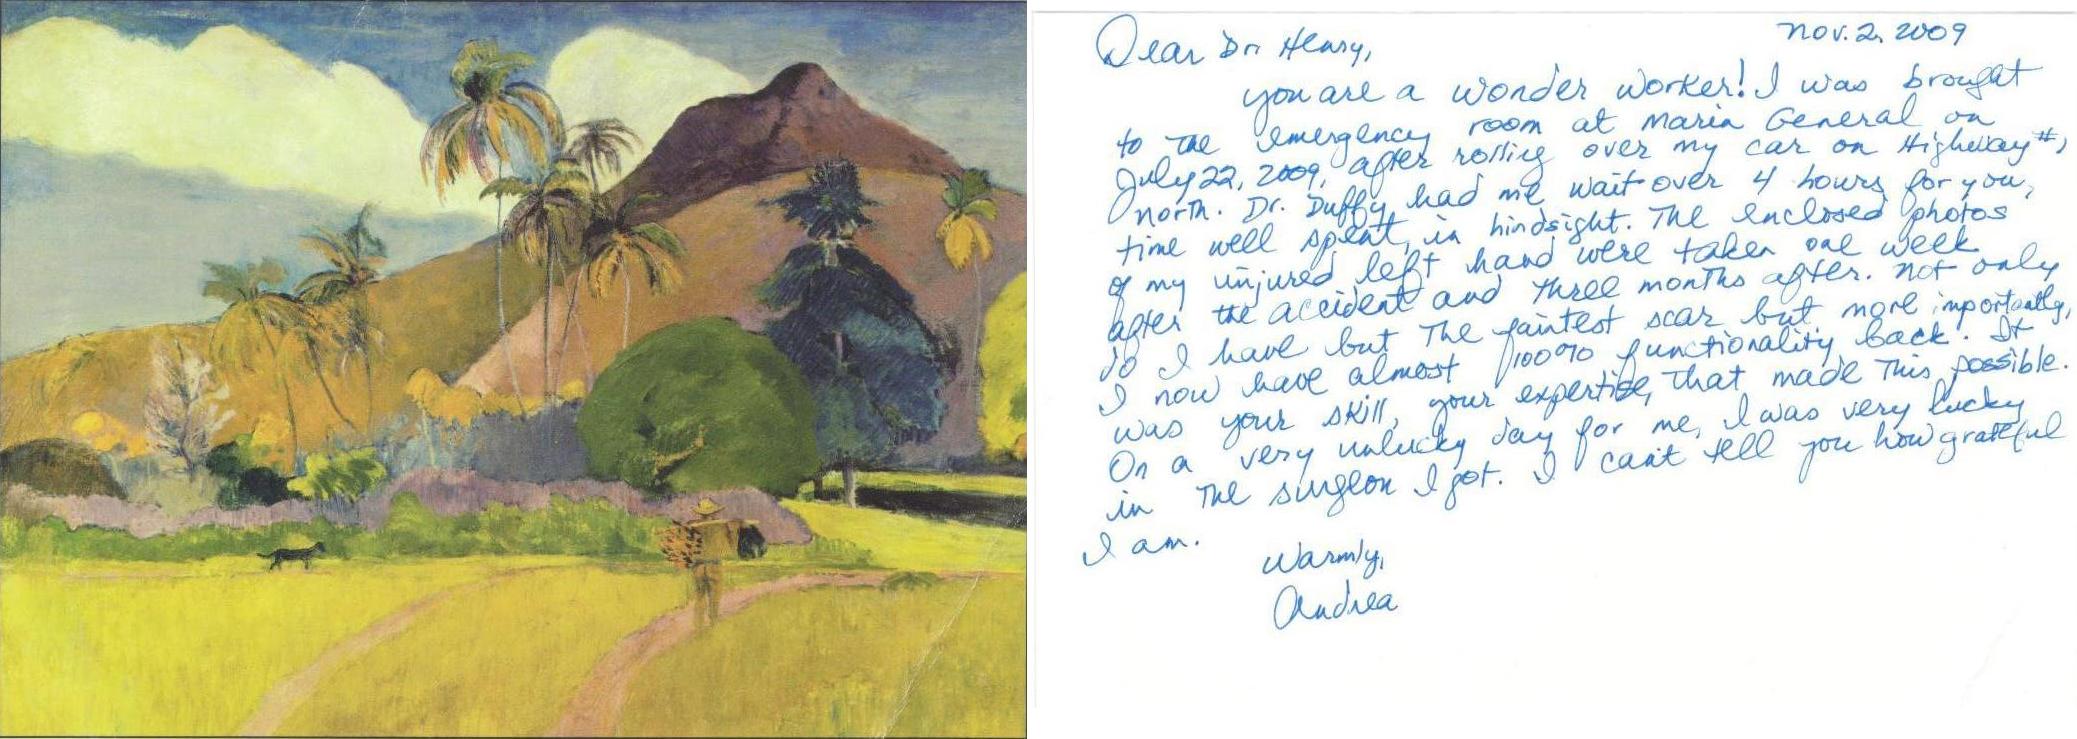 Nov. 2, 2009
Dear Dr. Henry,
You are a wonder worker! I was brought
to the emergency room at Marin General on
July 22, 2009, after rolling over my car on Highway #1
north. Dr. Duffy had me wait over 4 hours for you,
time well spent, in hindsight. The enclosed photos
of my injured left hand were taken one week
after the accident and three months after. Not only
do I have but the faintest scar but more importantly,
I now have almost 100% functionality back. It
was your skill, your expertise, that made this possible.
On a very unlucky day for me, I was very lucky
in the surgeon I got. I can't tell you how grateful
I am.
Warmly,
Andrea